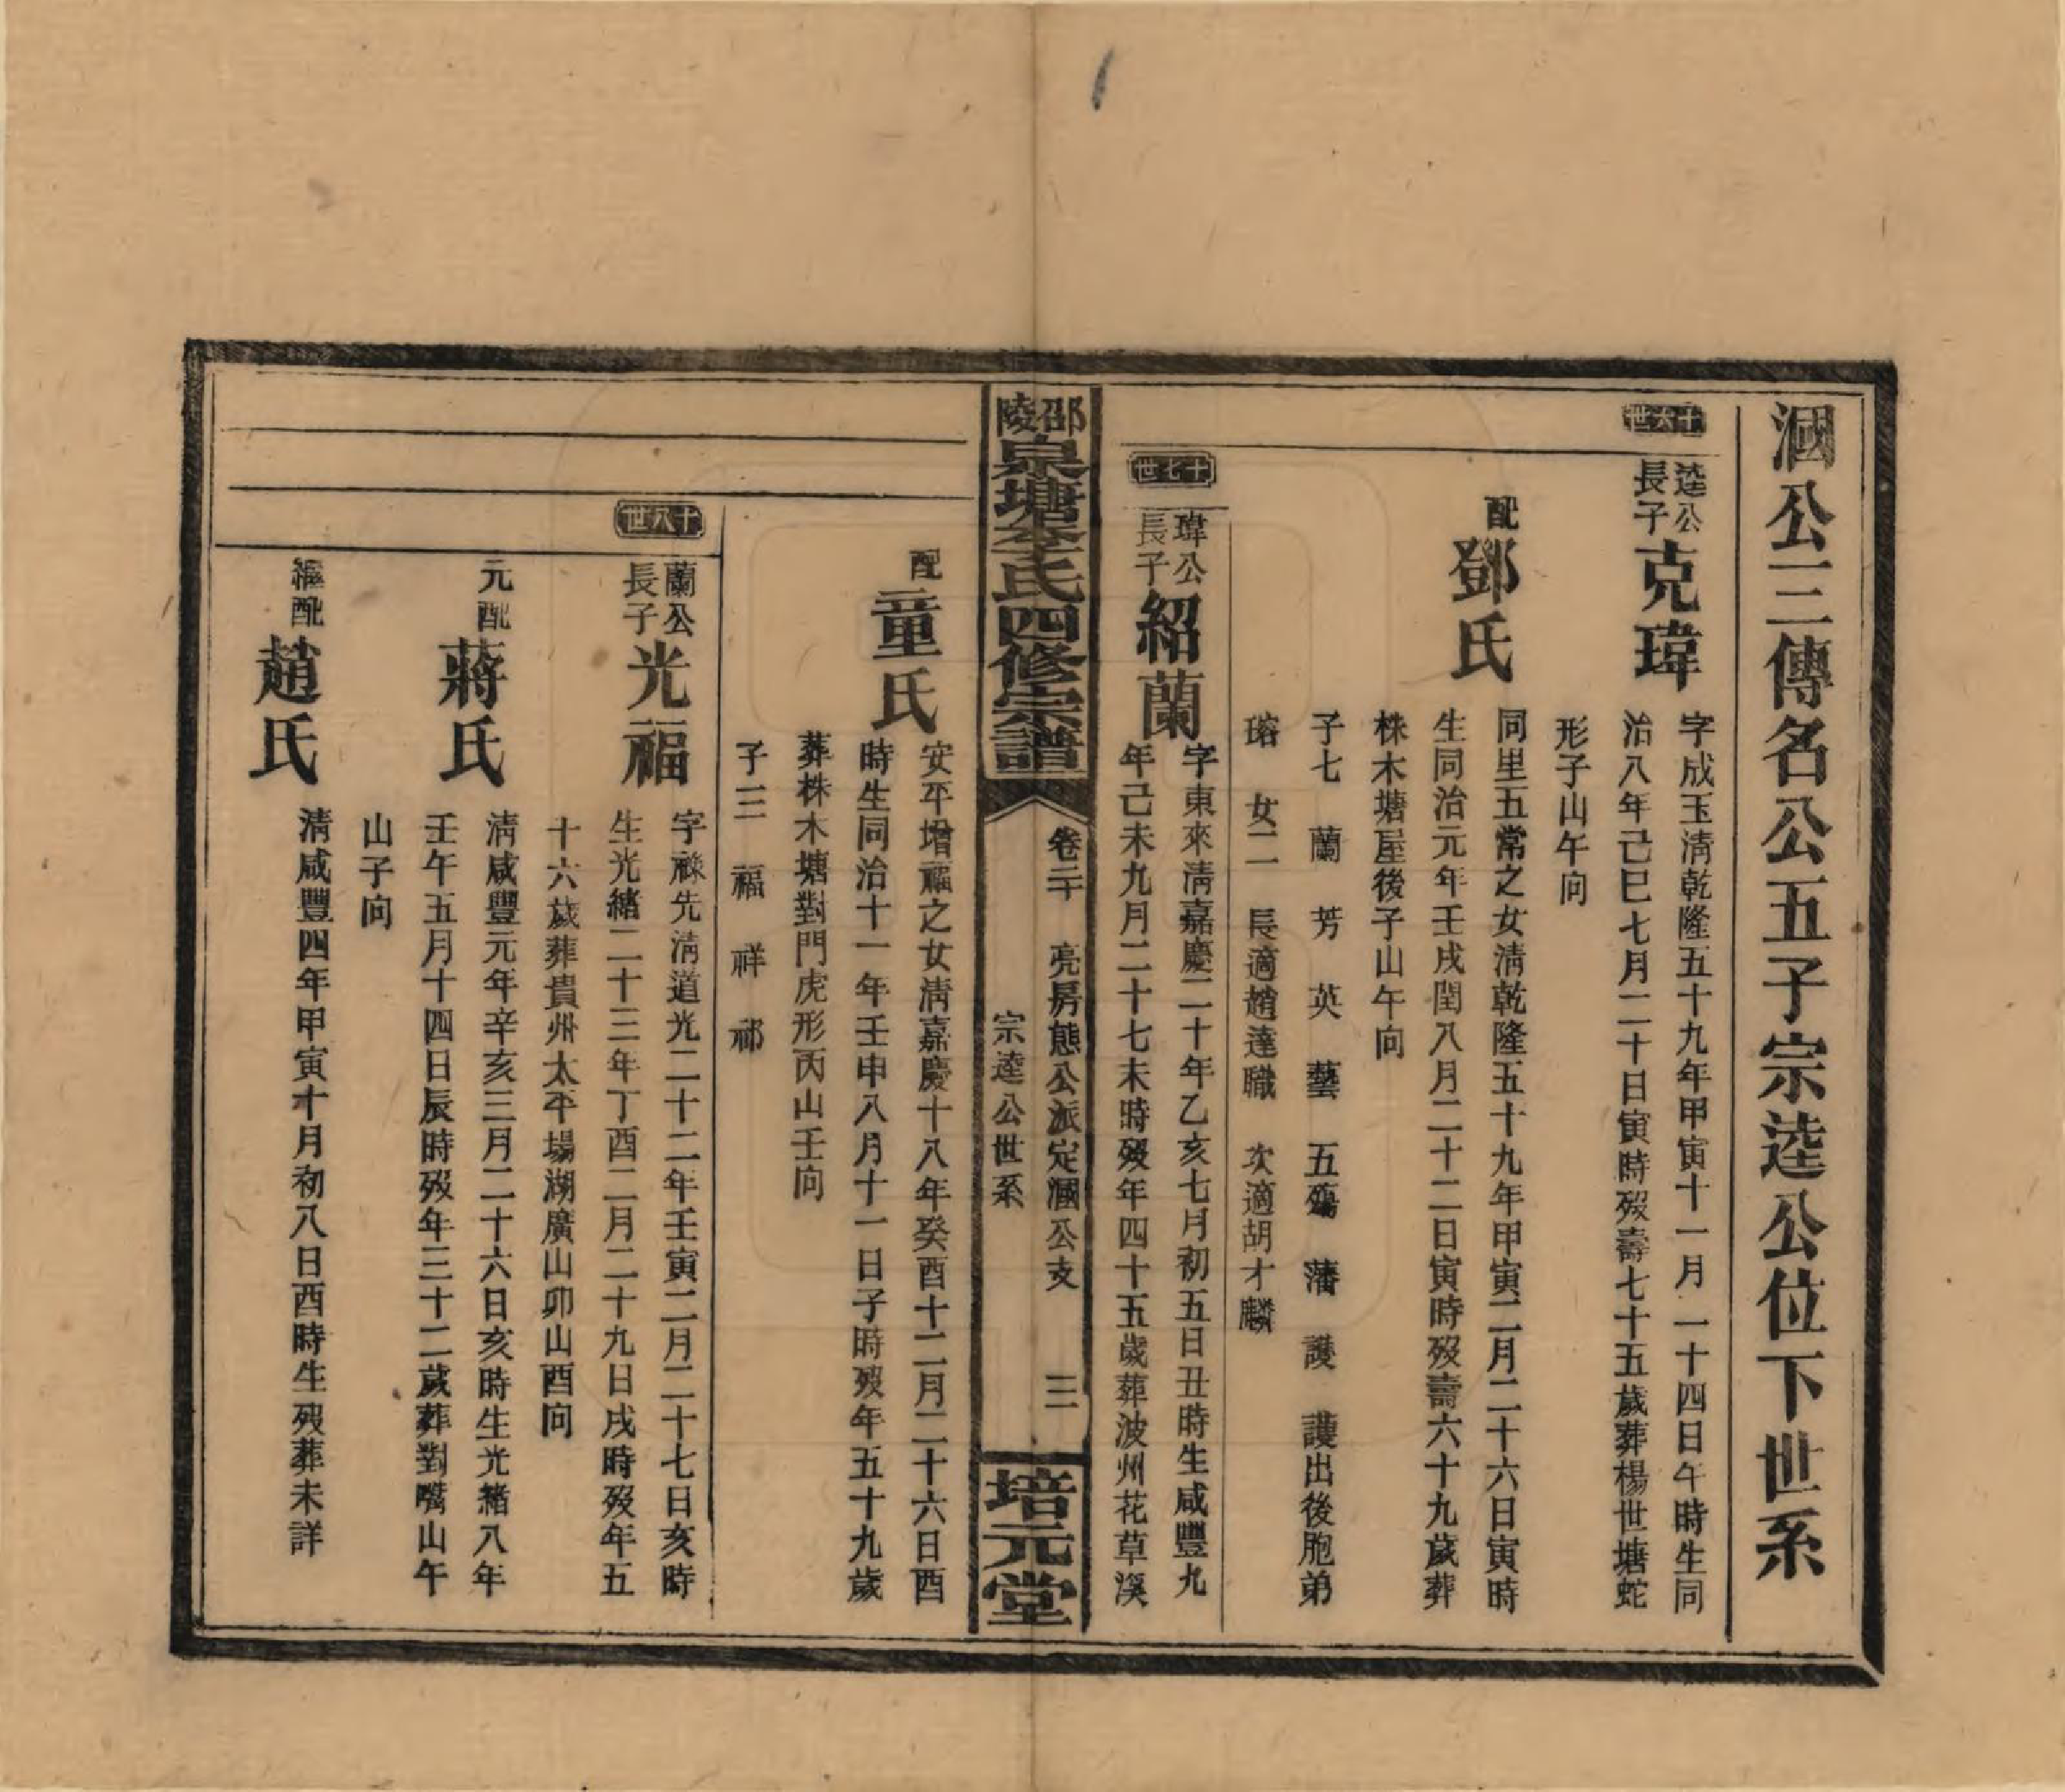 涃公三傳名公五子宗逵公位下世系
十六世
逵公長子
克瑋
字成玉清乾隆五十九年甲寅十一月二十四日午時生同
治八年己巳七月二十日寅時歿壽七十五歲葬楊世塘蛇
形子山午向
配
鄧氏
同里五常之女清乾隆五十九年甲寅二月二十六日寅時
生同治元年壬戌閏八月二十二日寅時歿壽六十九歲葬
株木塘屋後子山午向
子七 蘭 芳 英 藝 五殤 藩 護 護出後胞弟
瑢 女二 長適趙達職 次適胡才麟
十七世
瑋公長子
紹蘭
字東來清嘉慶二十年乙亥七月初五日丑時生咸豐九
年己未九月二十七未時歿年四十五歲葬波州花草溪
邵陵
泉塘李氏四修宗譜
卷二十 亮房態公派定涃公支 三
宗逵公世系
培元堂
配
童氏
安平增福之女清嘉慶十八年癸酉十二月二十六日酉
時生同治十一年壬申八月十一日子時歿年五十九歲
葬株木塘對門虎形丙山壬向
子三 福 祥 祁
十八世
蘭公長子
光福
字祿先清道光二十二年壬寅二月二十七日亥時
生光緒二十三年丁酉二月二十九日戌時歿年五
十六歲葬貴州太平場湖廣山卯山酉向
元配
蔣氏
清咸豐元年辛亥三月二十六日亥時生光緒八年
壬午五月十四日辰時歿年三十二歲葬對嘴山午
山子向
繼配
趙氏
清咸豐四年甲寅十月初八日酉時生歿葬未詳